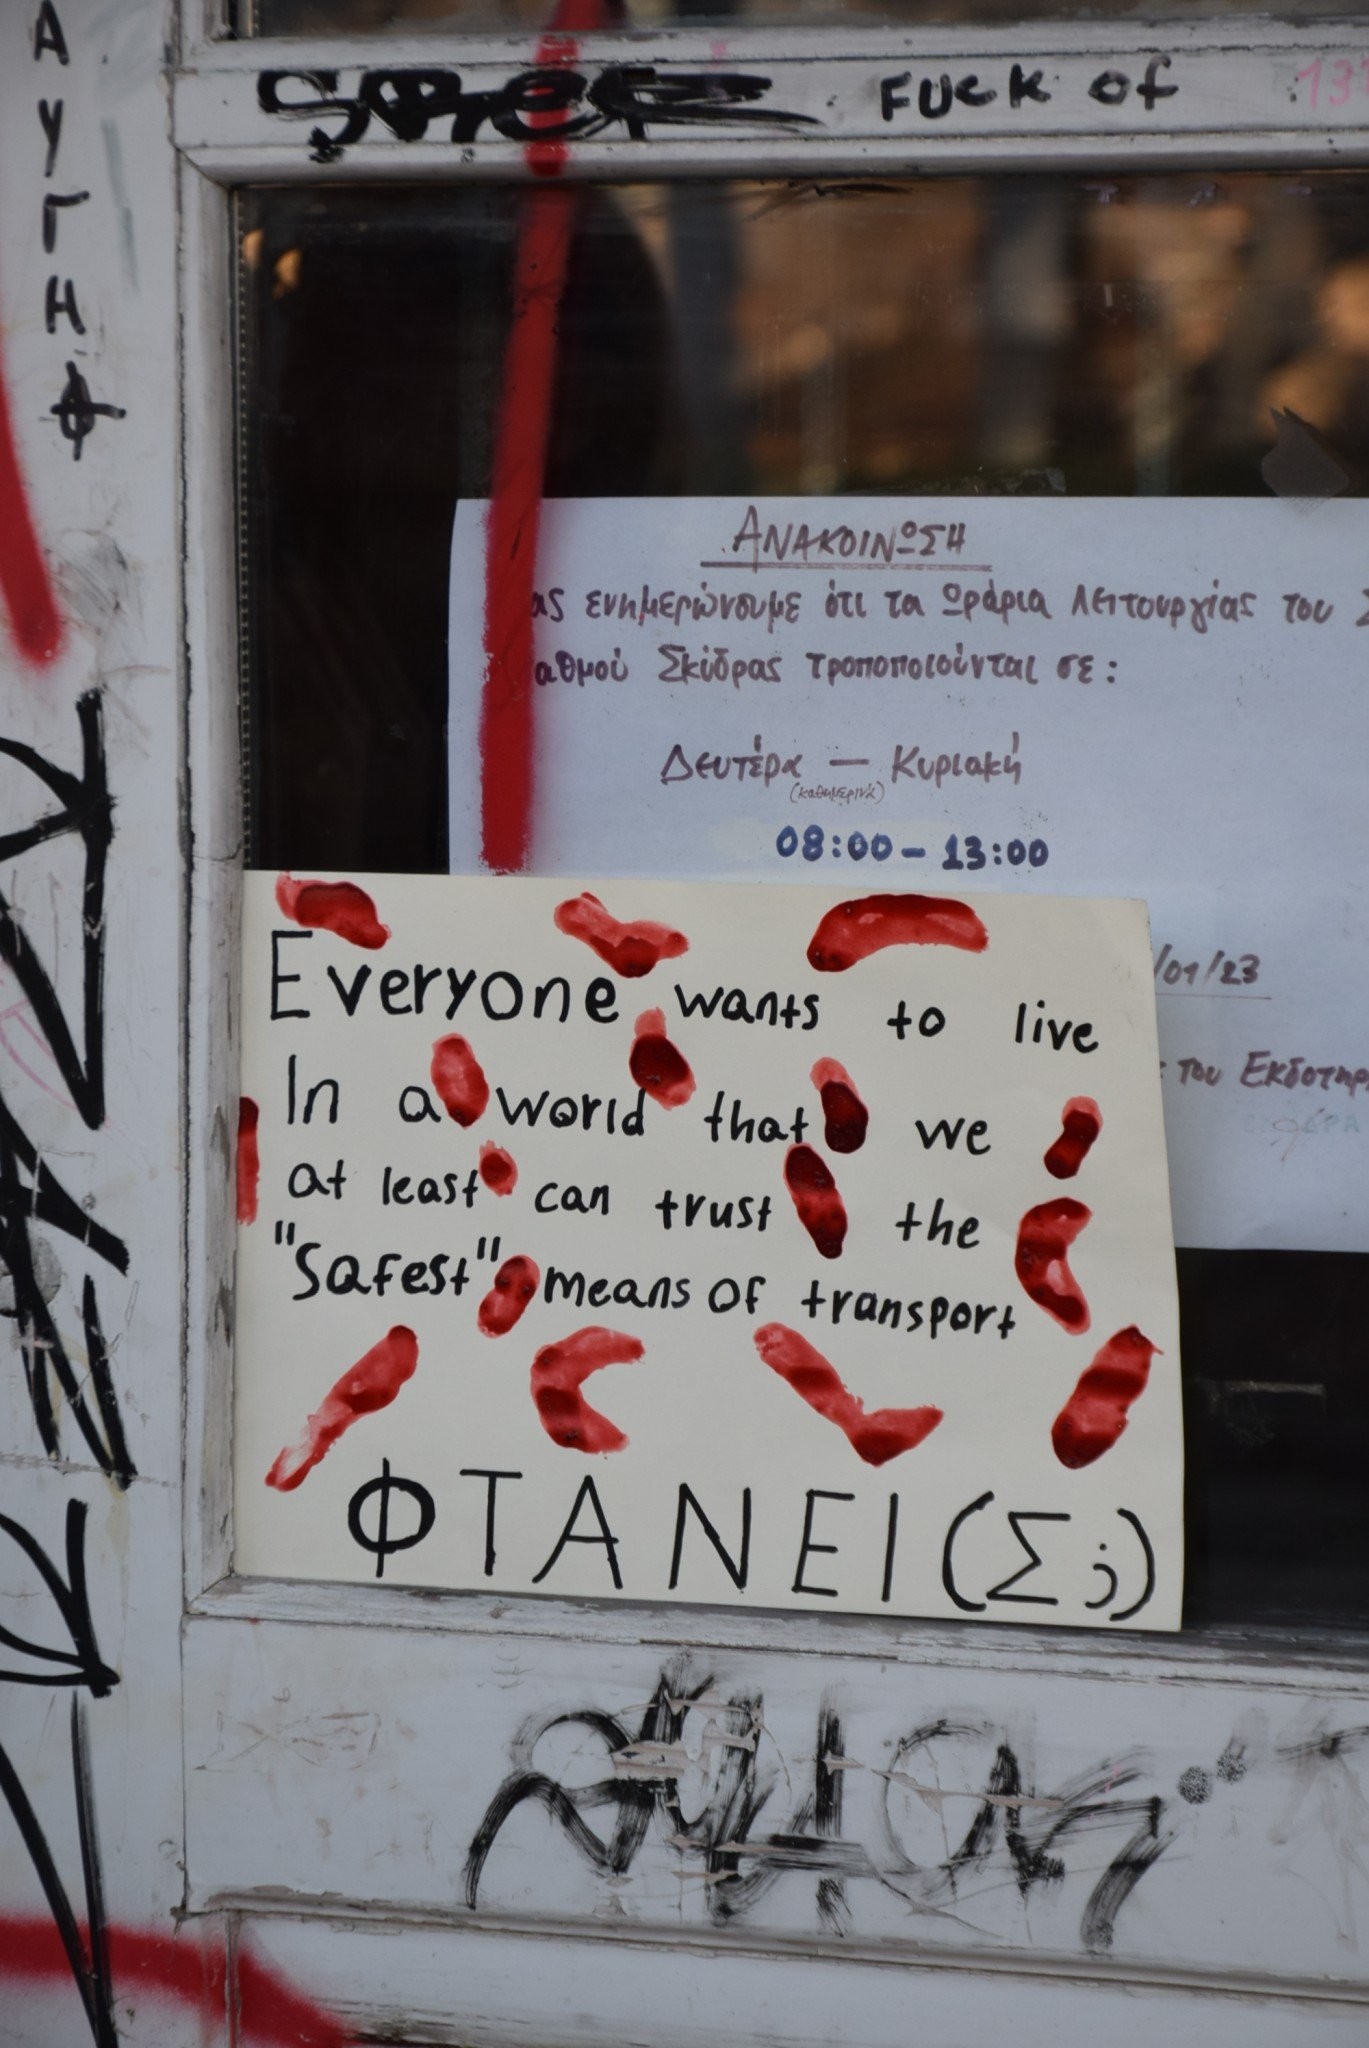 FUCK of
ΑΥΓΗ
ΑΝΑΚΟΙΝΩΣΗ
ας ενημερώνουμε ότι τα Ωράρια Λειτουργίας του Σ
αθμού Σκύδρας τροποποιούνται σε:
Δευτέρα — Κυριακή
(καθημερινά)
08:00 - 13:00
/01/23
του Εκδοτηρ
Everyone wants to live
In a world that we
at least can trust the
"Safest" means of transport
ΦΤΑΝΕΙ (Σ;)